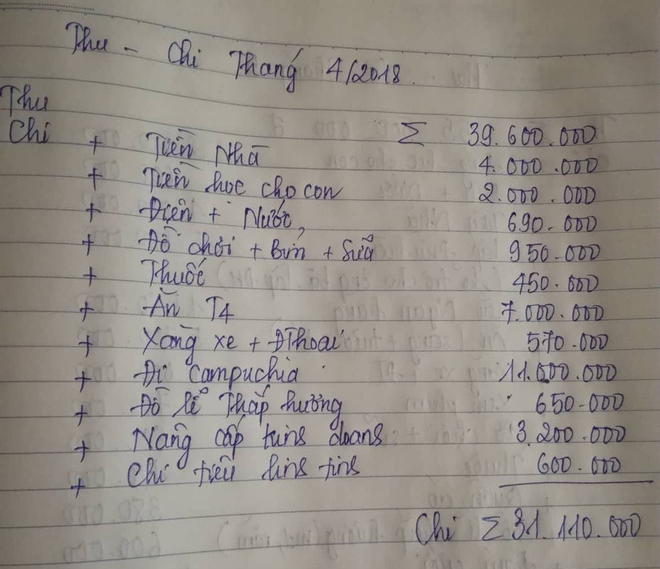 Thu - Chi Tháng 4/2018.
Thu Σ 39.600.000
Chi + Tiền Nhà 4.000.000
+ Tiền học cho con 2.000.000
+ Điện + Nước, 690.000
+ Đồ chơi + Bỉm + Sữa 950.000
+ Thuốc 450.000
+ Ăn T4 7.000.000
+ Xăng xe + ĐThoại 570.000
+ Đi Campuchia 11.000.000
+ Đồ lễ Thắp hương 650.000
+ Nâng cấp kinh doanh 3.200.000
+ Chi tiêu linh tinh 600.000
Chi Σ 31.110.000